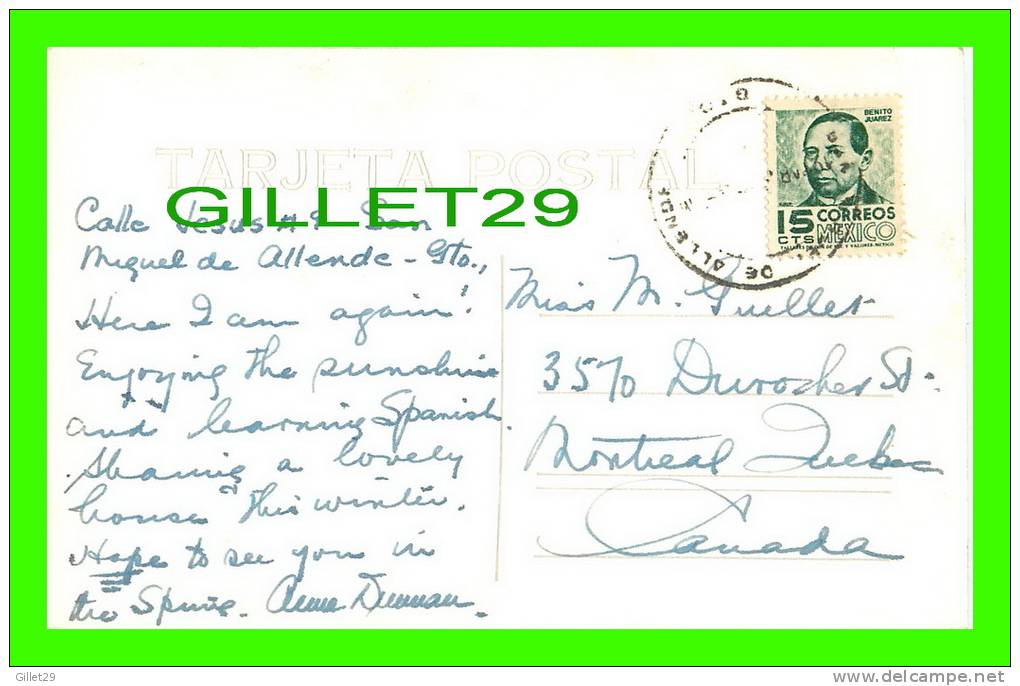 TARJETA POSTAL
GILLET29
BENITO
JUAREZ
15 CORREOS
CTS MEXICO
DE ALLENDE
Calle Jesus # San
Miguel de Allende - Gto.,
Here I am again!
Enjoying the sunshine
and learning Spanish.
Sharing a lovely
house this winter.
Hope to see you in
the Spring. Anne Dunnan.
Miss M. Guellet
3570 Durocher St.
Montreal Quebec
Canada
Gillet29
www.delcampe.net